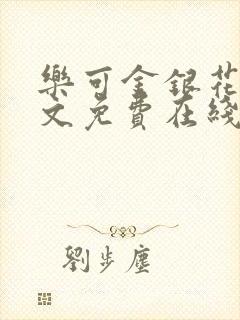 樂可金銀花
文免費在綫
劉步塵